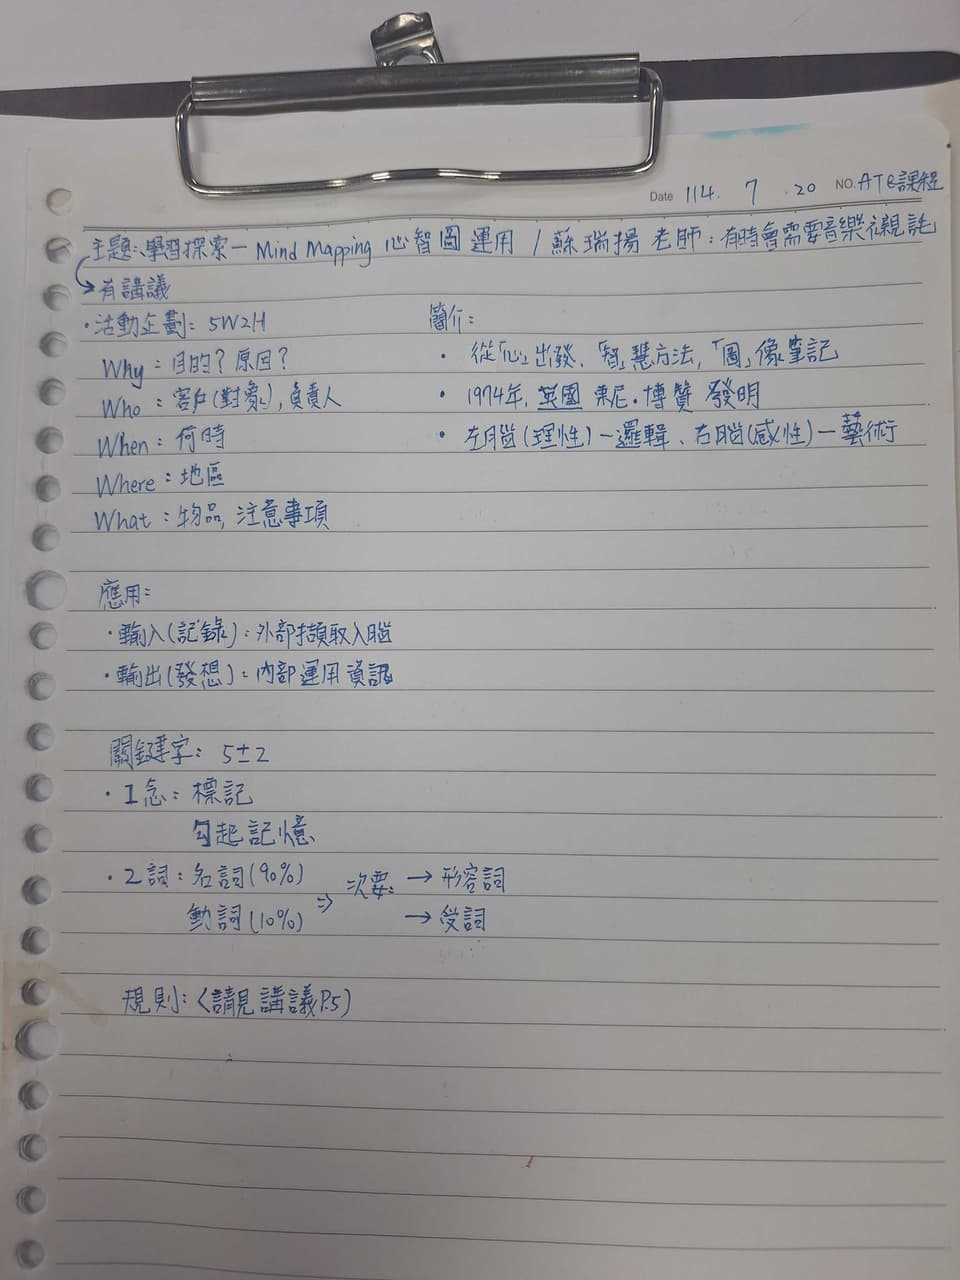 Date 114. 7 .20 NO. ATC課程
主題:學習探索— Mind Mapping 心智圖運用 / 蘇瑞揚 老師:有時會需要音樂襯託
→有講議
·活動企劃: 5W2H
Why:目的?原因?
Who:客戶(對象),負責人
When:何時
Where:地區
What:物品,注意事項
簡介:
· 從「心」出發,「智」慧方法,「圖」像筆記
· 1974年,英國 東尼.博贊 發明
· 左腦(理性)—邏輯、右腦(感性)—藝術
應用:
·輸入(記錄):外部擷取入腦
·輸出(發想):內部運用資訊
關鍵字: 5±2
·1念:標記
勾起記憶
·2詞:名詞(90%) ⇒ 次要: → 形容詞
動詞(10%) → 受詞
規則:〈請見講議P.5)